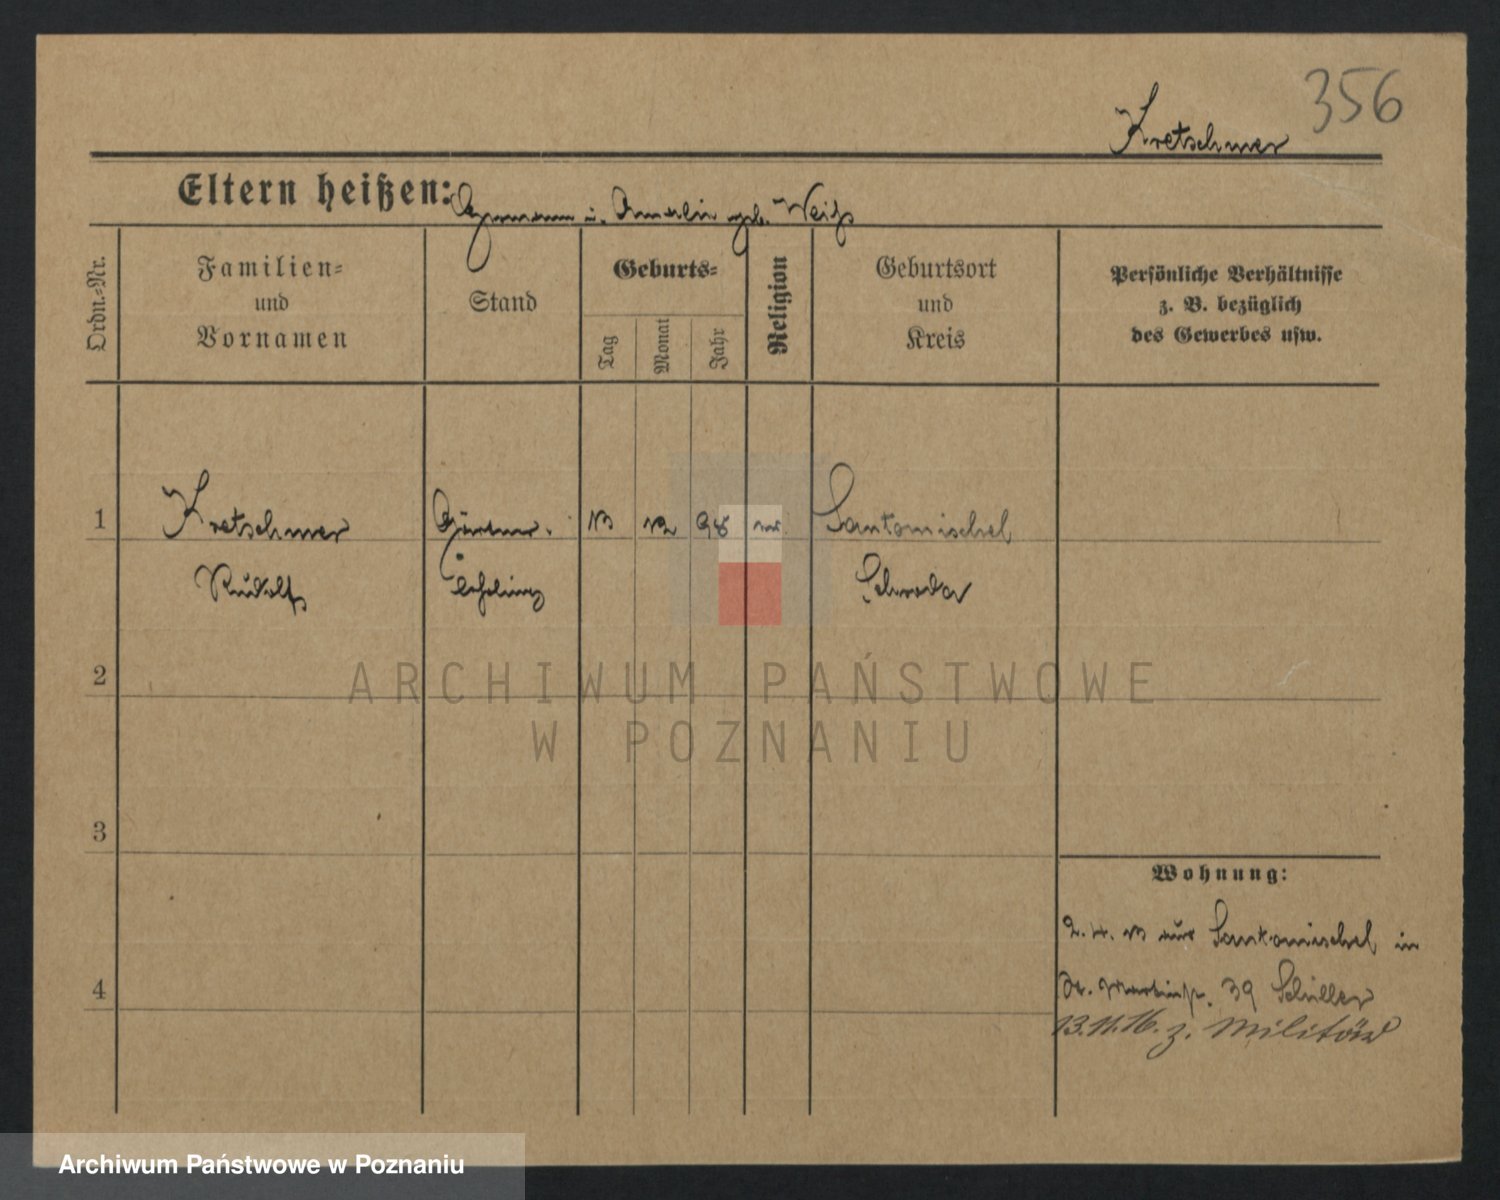 356
Kretschmer
Eltern heißen: Hermann u. Amalie geb. Weiß
Ordn.-Nr.
Familien-
und
Vornamen
Stand
Geburts-
Tag
Monat
Jahr
Religion
Geburtsort
und
Kreis
Persönliche Verhältnisse
z. B. bezüglich
des Gewerbes usw.
1 Kretschmer Gärtner- 12 98 Santomischel
Rudolf Lehrling Schroda
ARCHIWUM PAŃSTWOWE
W POZNANIU
2
3
4
Wohnung:
2.4.13 aus Santomischel in
St. Martinstr. 39 Schiller
13.11.16. z. Militär
Archiwum Państwowe w Poznaniu